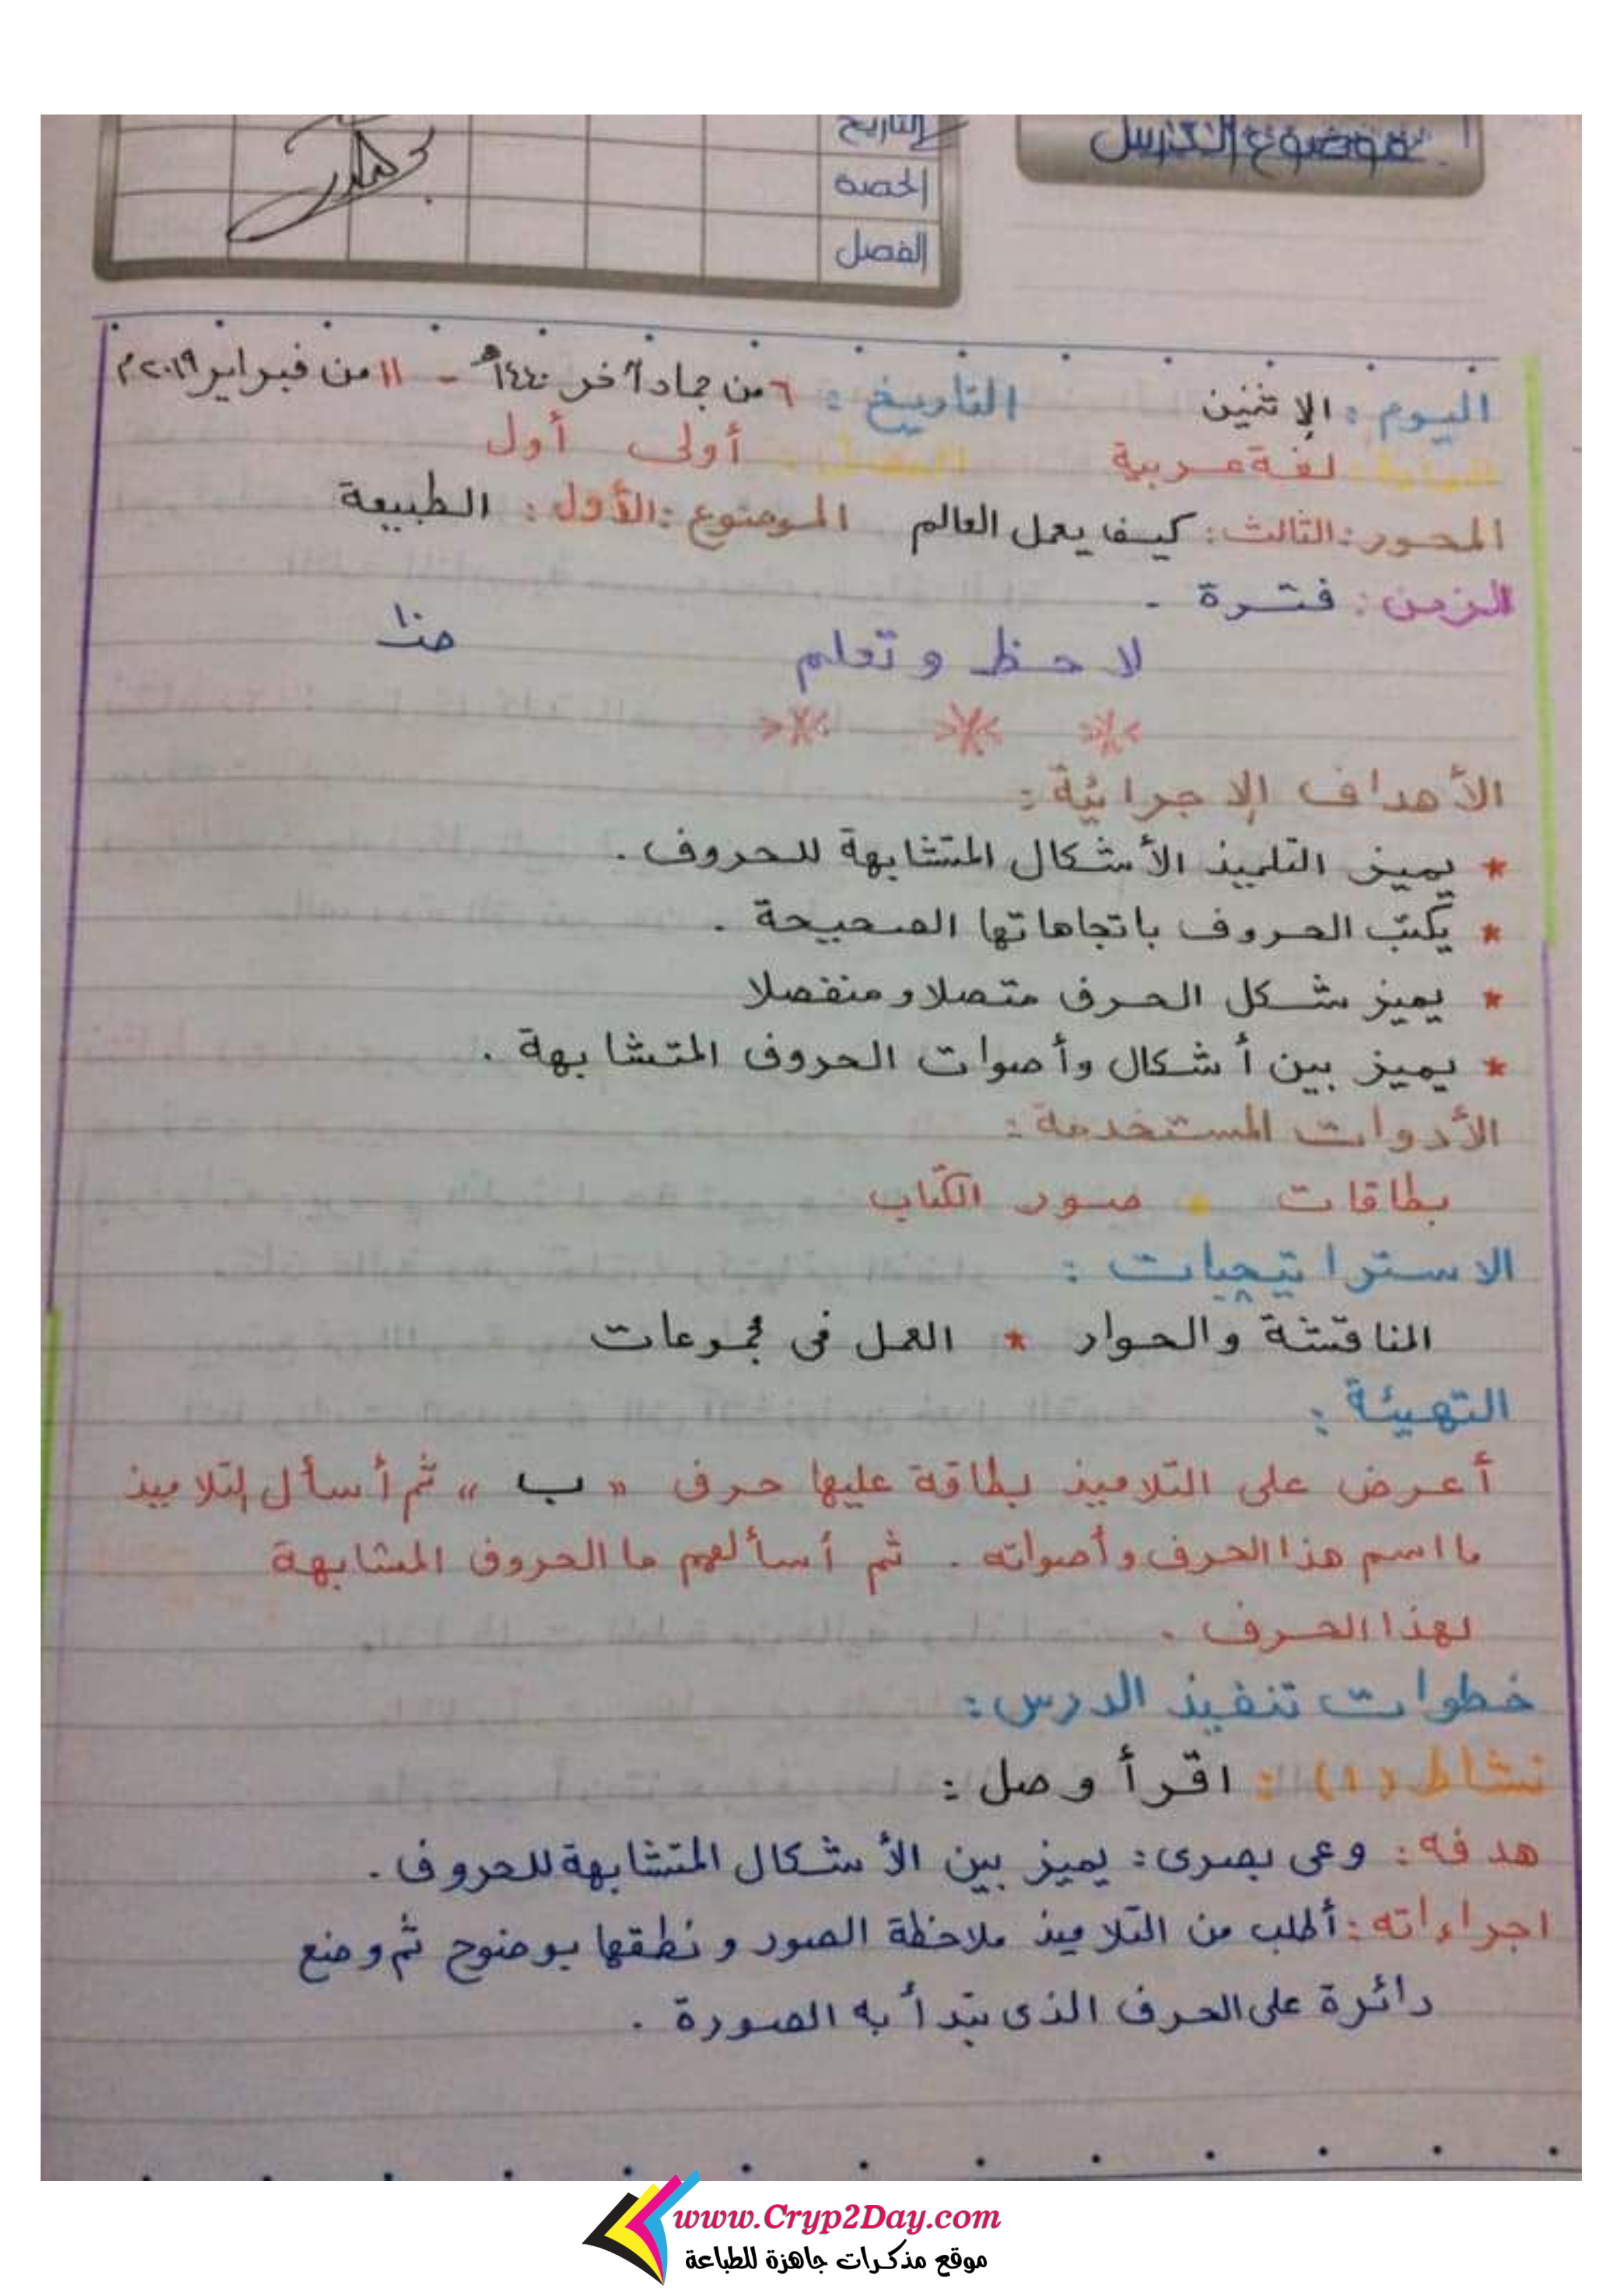 موضوع الدرس
التاريخ
الحصة
الفصل
اليوم : الإثنين التاريخ : ٦ من جماد آخر ١٤٤٠هـ - ١١ من فبراير ٢٠١٩م
المادة : لغة عربية الفصل : أولى أول
المحور : الثالث : كيف يعمل العالم الموضوع : الأول : الطبيعة
الزمن : فترة -
لاحظ وتعلم
الأهداف الإجرائية :
* يميز التلميذ الأشكال المتشابهة للحروف .
* يكتب الحروف باتجاهاتها الصحيحة .
* يميز شكل الحرف متصلا ومنفصلا
* يميز بين أشكال وأصوات الحروف المتشابهة .
الأدوات المستخدمة :
بطاقات * صور الكتاب
الاستراتيجيات :
المناقشة والحوار * العمل فى مجموعات
التهيئة :
أعرض على التلاميذ بطاقة عليها حرف " ب " ثم أسأل التلاميذ
ما اسم هذا الحرف وأصواته . ثم أسألهم ما الحروف المشابهة
لهذا الحرف .
خطوات تنفيذ الدرس :
نشاط (١) : اقرأ وصل :
هدفه : وعى بصرى : يميز بين الأشكال المتشابهة للحروف .
اجراءاته : أطلب من التلاميذ ملاحظة الصور ونطقها بوضوح ثم وضع
دائرة على الحرف الذى تبدأ به الصورة .
www.Cryp2Day.com
موقع مذكرات جاهزة للطباعة